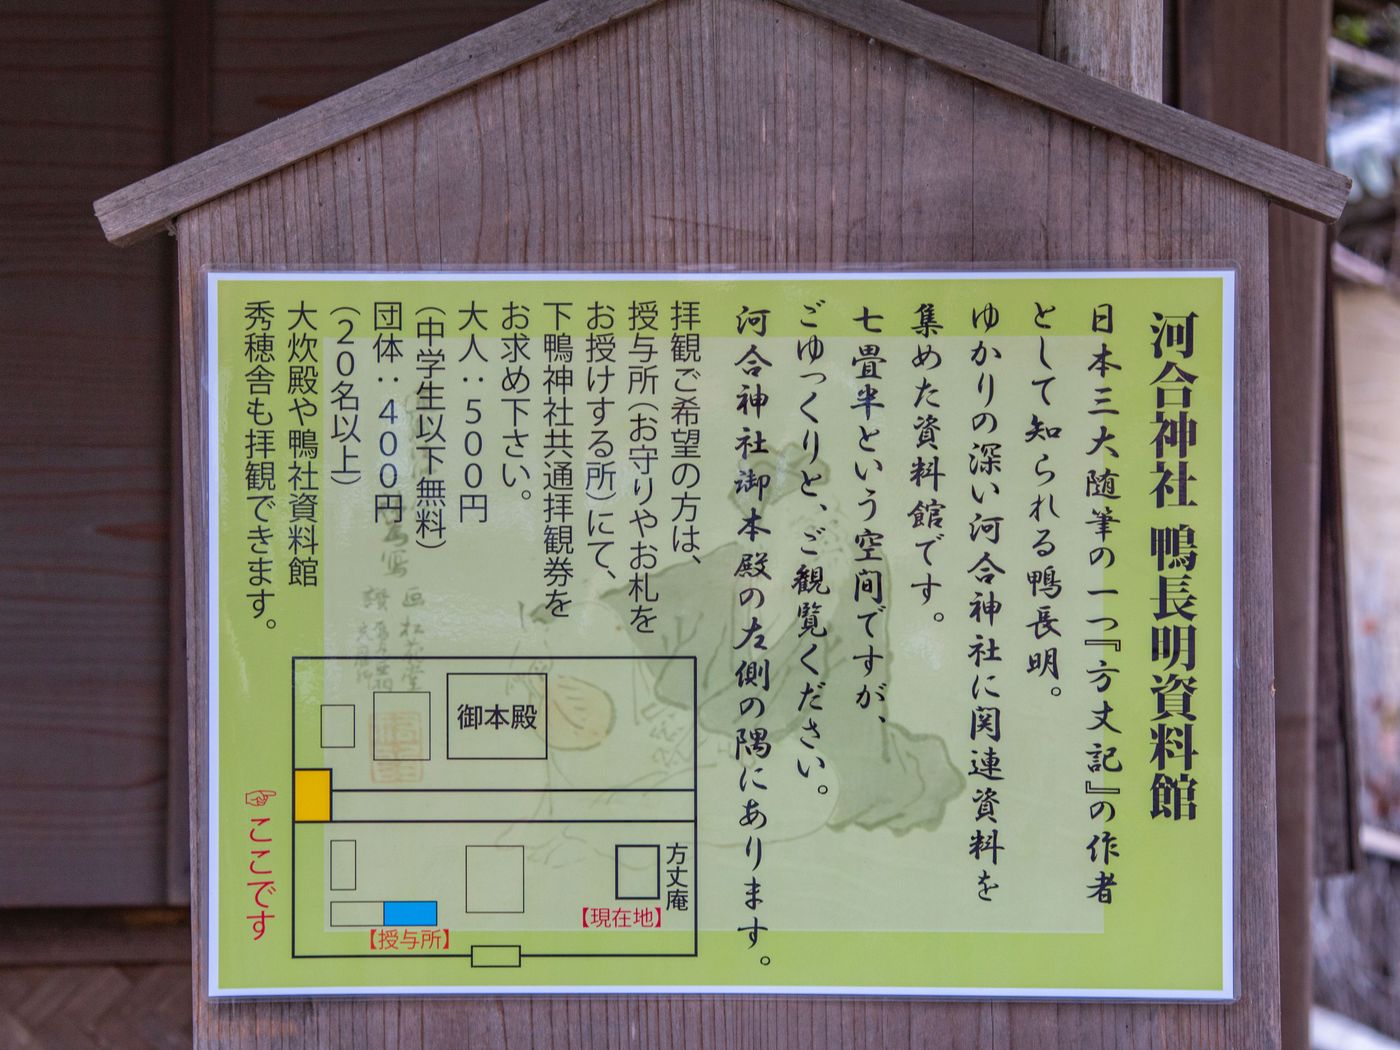 河合神社 鴨長明資料館
日本三大随筆の一つ『方丈記』の作者
として知られる鴨長明。
ゆかりの深い河合神社に関連資料を
集めた資料館です。
七畳半という空間ですが、
ごゆっくりと、ご観覧ください。
河合神社御本殿の左側の隅にあります。
拝観ご希望の方は、
授与所（お守りやお札を
お授けする所）にて、
下鴨神社共通拝観券を
お求め下さい。
大人：５００円
（中学生以下無料）
団体：４００円
（２０名以上）
大炊殿や鴨社資料館
秀穂舎も拝観できます。
御本殿
方丈庵
【現在地】
【授与所】
☞ここです